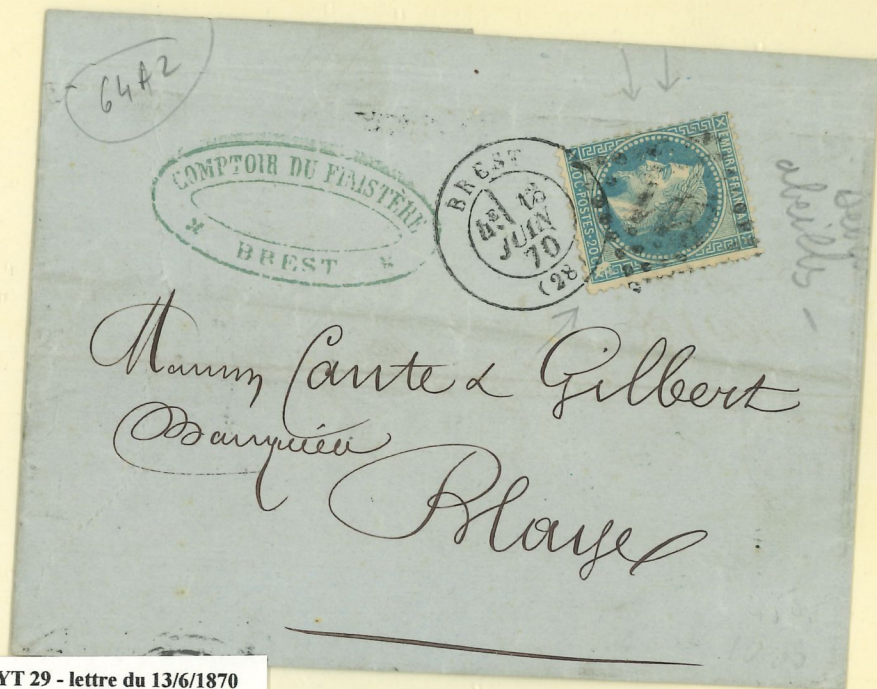 64A2
COMPTOIR DU FINISTÈRE
BREST
BREST
4E 13
JUIN
70
(28
EMPIRE FRANÇAIS
20 C. POSTES 20 C.
abeilles -
Cante & Gilbert
Blaye
YT 29 - lettre du 13/6/1870